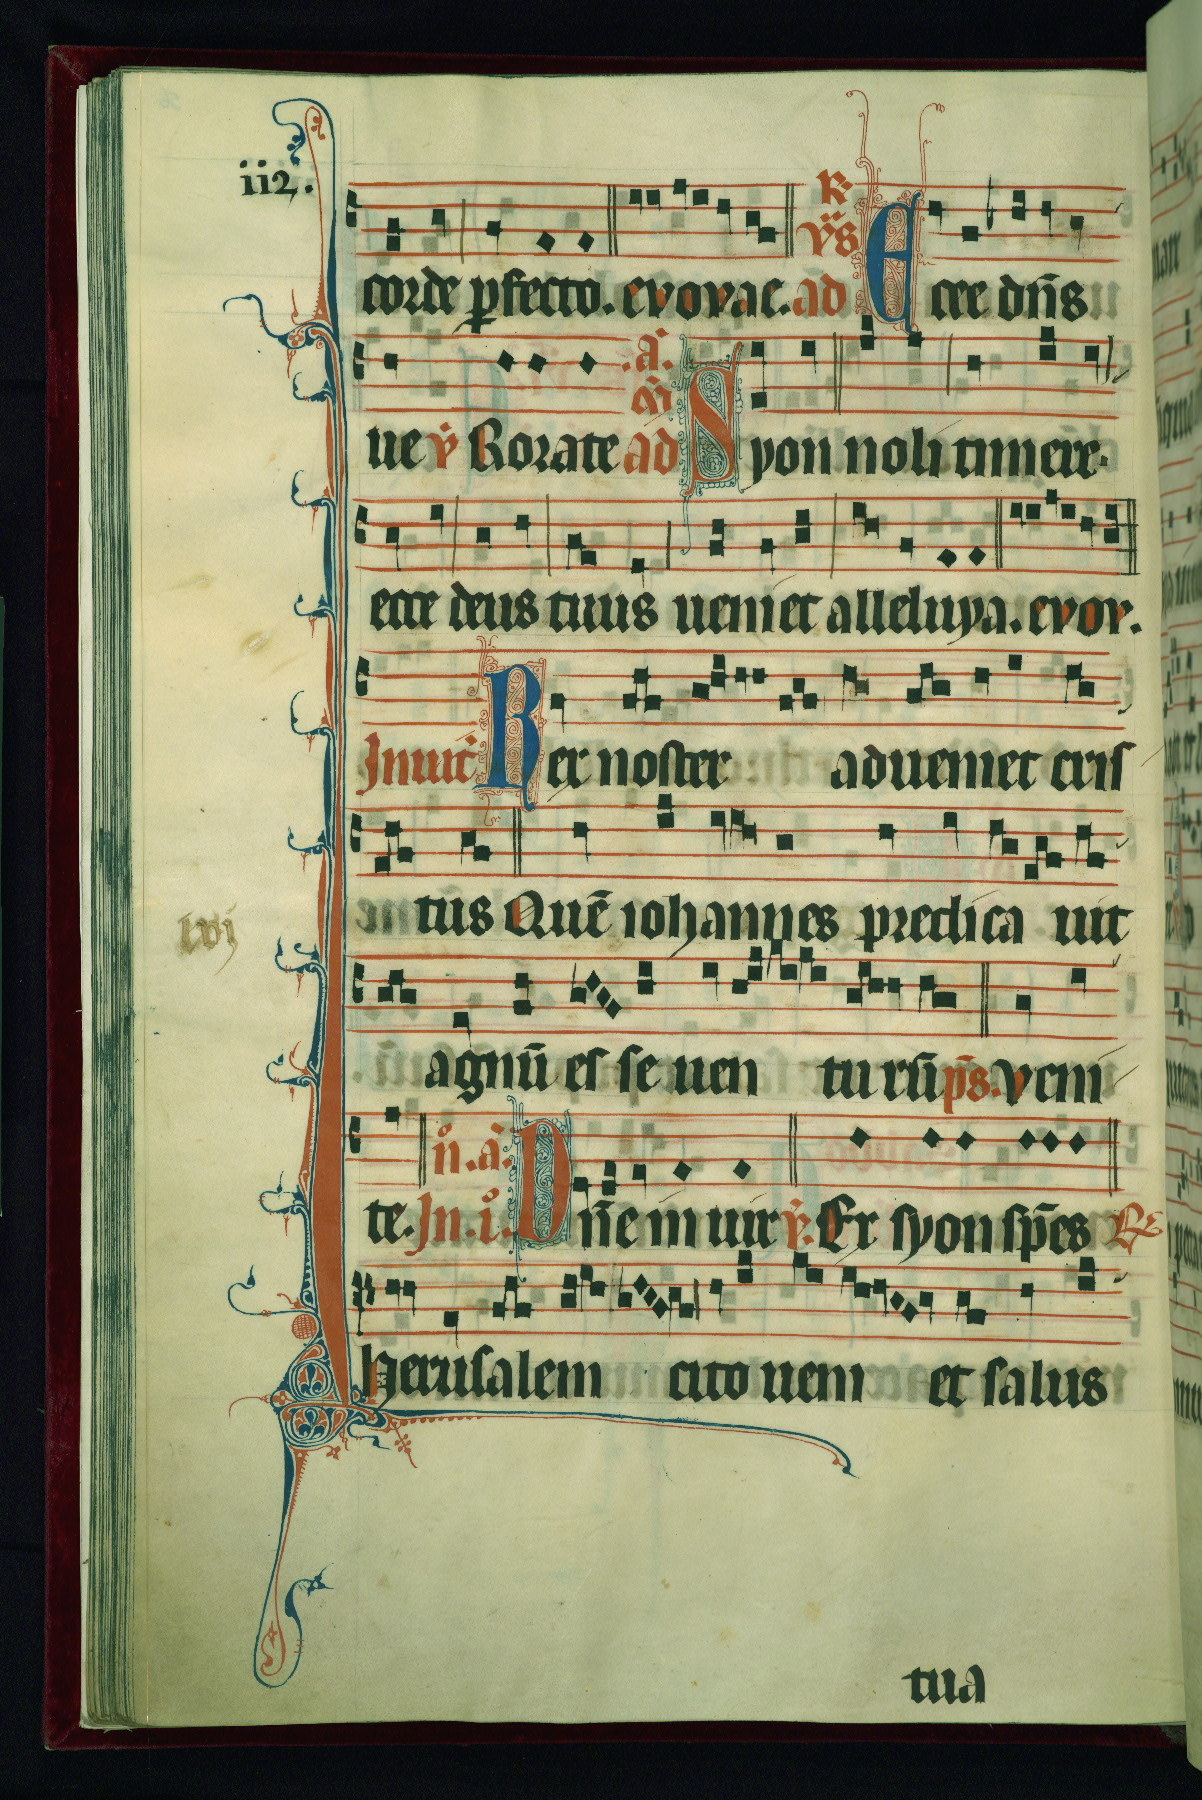 iij.
R
ys
corde pfecto. evovae. ad Ecce dn̄s
a.
ue v̄ Rorate ad Syon noli timere.
ecce deus tuus ueniet alleluya. evov.
Inuit Rex noster adueniet cris
tus Quē iohannes predica uit
lvi
agnū es se uen tu rū ps. Veni
n. a.
te. In. i. Dn̄e in uir v̄. Ex syon sp̄es R
Jherusalem cito ueni et salus
tua